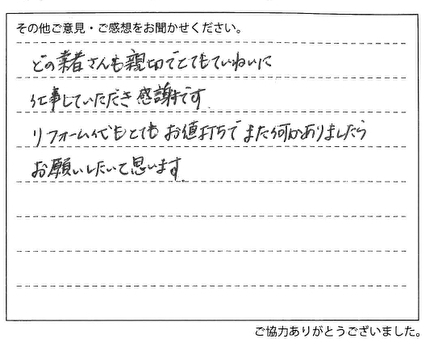 その他ご意見・ご感想をお聞かせください。
どの業者さんも親切でとてもていねいに
仕事していただき感謝です
リフォーム代もとてもお値打ちでまた何かありましたら
お願いしたいと思います
ご協力ありがとうございました。